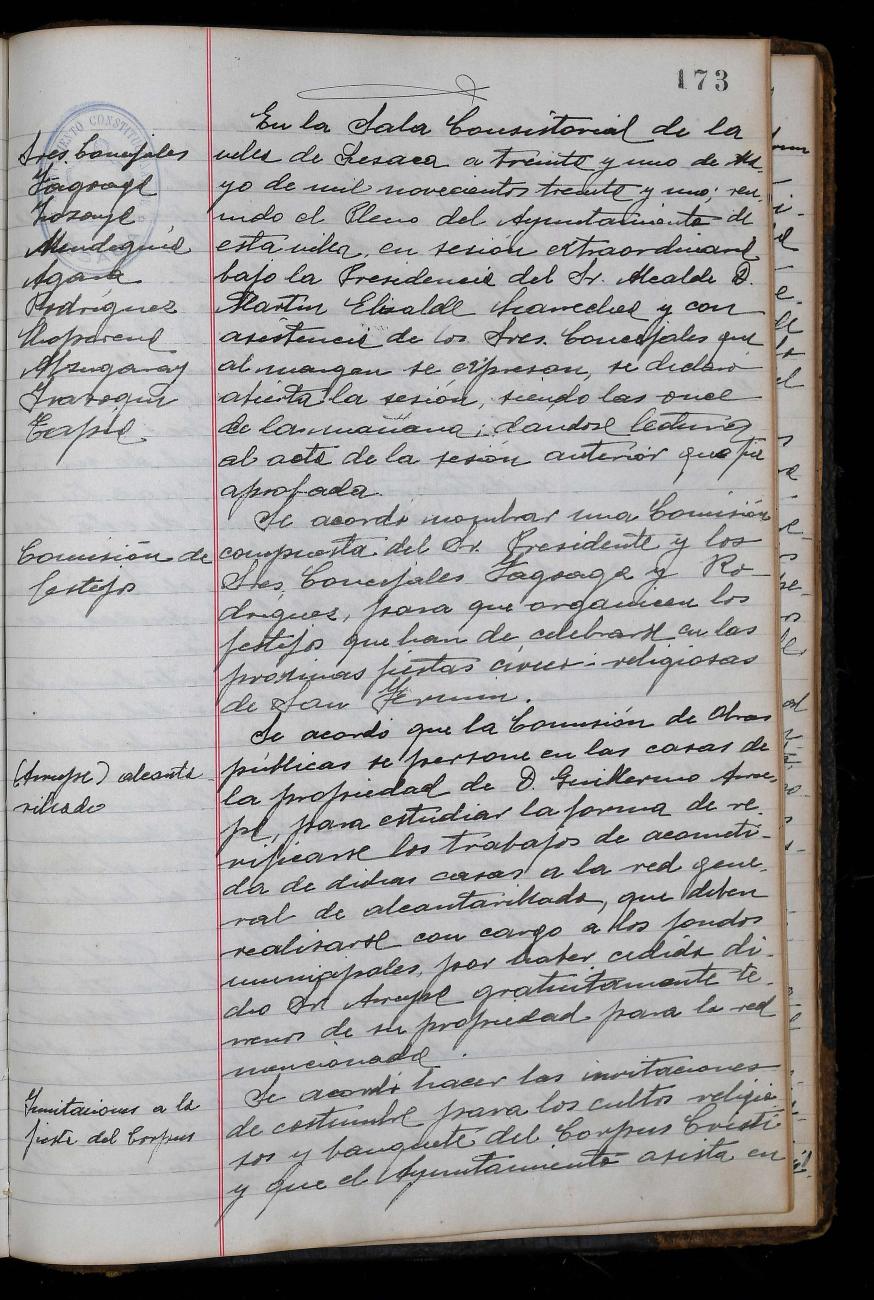 173
En la Sala Consistorial de la
villa de Lesaca a treinta y uno de Ma-
yo de mil novecientos treinta y uno; reu-
nido el Pleno del Ayuntamiento de
esta villa, en sesión extraordinaria
bajo la Presidencia del Sr. Alcalde D.
Martin Elizalde y con
asistencia de los Sres. Concejales que
al margen se expresan, se declaró
abierta la sesión, siendo las once
de la mañana; dandose lectura
al acta de la sesión anterior que fué
aprobada.
Sres. Concejales
Tagoaga
Mendeguia
Agara
Rodríguez
Altzugaray
Irazoqui
Tapia
Comisión de
festejos
Se acordó nombrar una Comisión
compuesta del Sr. Presidente y los
Sres. Concejales Tagoaga y Ro-
driguez, para que organicen los
festejos que han de celebrarse en las
proximas fiestas civico-religiosas
de San Fermin.
(Arrupe) alcanta-
rillado
Se acordó que la Comisión de Obras
públicas se persone en las casas de
la propiedad de D. Guillermo Arru-
pe, para estudiar la forma de ve-
rificarse los trabajos de acometi-
da de dichas casas a la red gene-
ral de alcantarillado, que deben
realizarse con cargo a los fondos
municipales, por haber cedido di-
cho Sr. Arrupe gratuitamente te-
rrenos de su propiedad para la red
mencionada.
Invitaciones a la
fiesta del Corpus
Se acordó hacer las invitaciones
de costumbre para los cultos religio-
sos y banquete del Corpus Cristi
y que el Ayuntamiento asista en